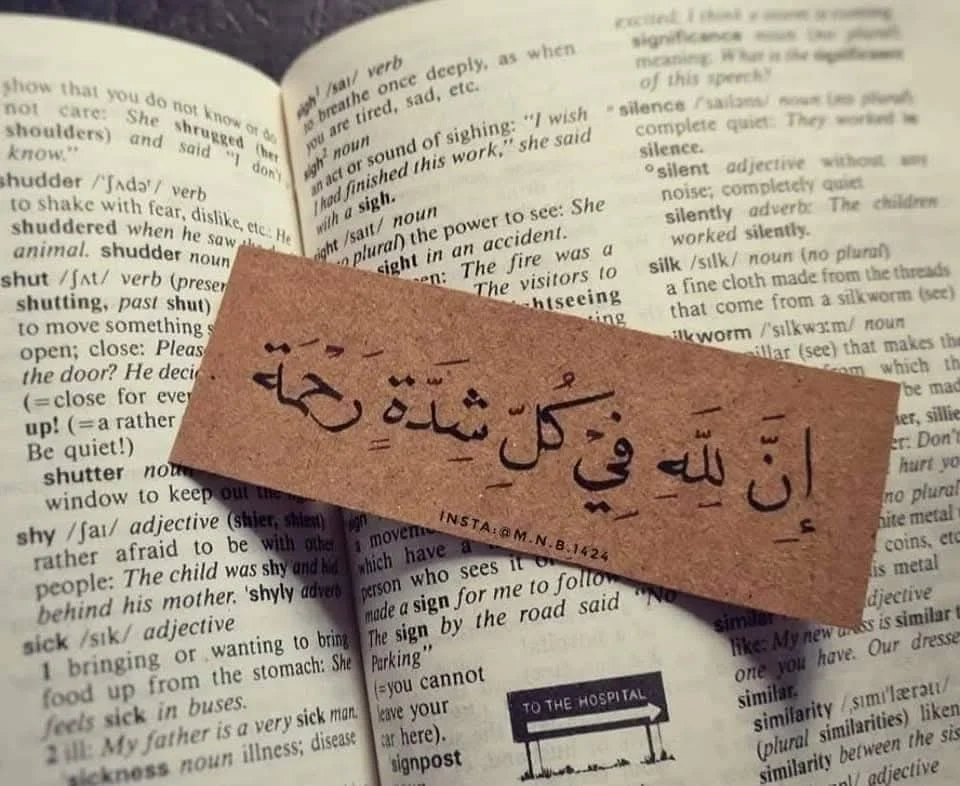 show that you do not know or do
not care: She shrugged (her
shoulders) and said "I don't
know."
shudder /'ʃʌdəʳ/ verb
to shake with fear, dislike, etc.: He
shuddered when he saw the
animal. shudder noun
shut /ʃʌt/ verb (presen
shutting, past shut)
to move something s
open; close: Pleas
the door? He deci
(=close for ever
up! (=a rather
Be quiet!)
shutter noun
window to keep out the
shy /ʃaɪ/ adjective (shier, shiest)
rather afraid to be with other
people: The child was shy and hid
behind his mother. 'shyly adverb
sick /sɪk/ adjective
1 bringing or wanting to bring
food up from the stomach: She
feels sick in buses.
2 ill: My father is a very sick man.
'sickness noun illness; disease
sigh¹ /saɪ/ verb
to breathe once deeply, as when
you are tired, sad, etc.
sigh² noun
an act or sound of sighing: "I wish
I had finished this work," she said
with a sigh.
sight /saɪt/ noun
no plural) the power to see: She
sight in an accident.
en: The fire was a
The visitors to
htseeing
ting
إِنَّ لِلَّهِ فِي كُلِّ شِدَّةٍ رَحْمَة
INSTA:@M.N.B.1424
sign
a movemen
which have a
person who sees it
made a sign for me to follow
The sign by the road said "No
Parking"
(=you cannot
leave your
car here).
signpost
TO THE HOSPITAL
excited, I think
significance noun (no plural)
meaning: What is the significance
of this speech?
°silence /'saɪləns/ noun (no plural)
complete quiet: They worked in
silence.
°silent adjective without any
noise; completely quiet
silently adverb: The children
worked silently.
silk /sɪlk/ noun (no plural)
a fine cloth made from the threads
that come from a silkworm (see)
ilkworm /'sɪlkwɜːm/ noun
pillar (see) that makes the
from which th
be mad
er, sillie
er: Don't
hurt yo
no plural
hite metal
coins, etc
is metal
djective
similar
like: My new dress is similar t
one you have. Our dresse
similar.
similarity /ˌsɪmɪ'lærətɪ/
(plural similarities) liken
similarity between the sis
adjective